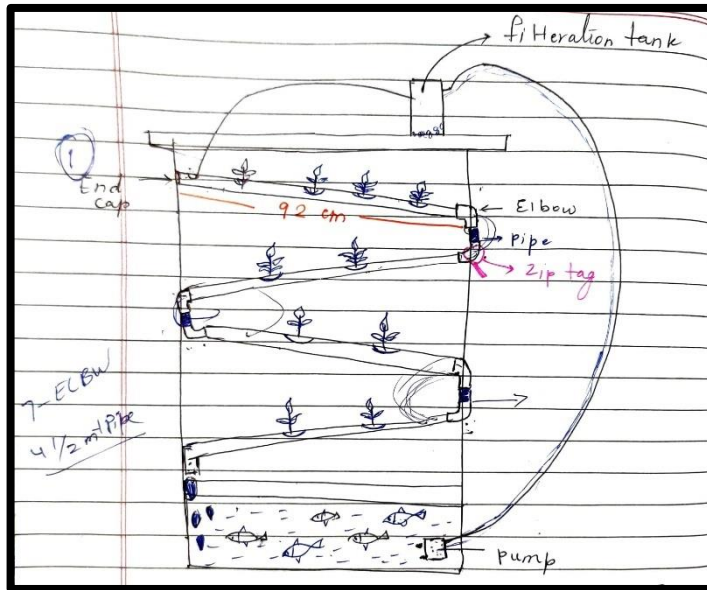 filteration tank
1
End
cap
92 cm
Elbow
pipe
Zip tag
7-ELBW
4 1/2 mt Pipe
pump